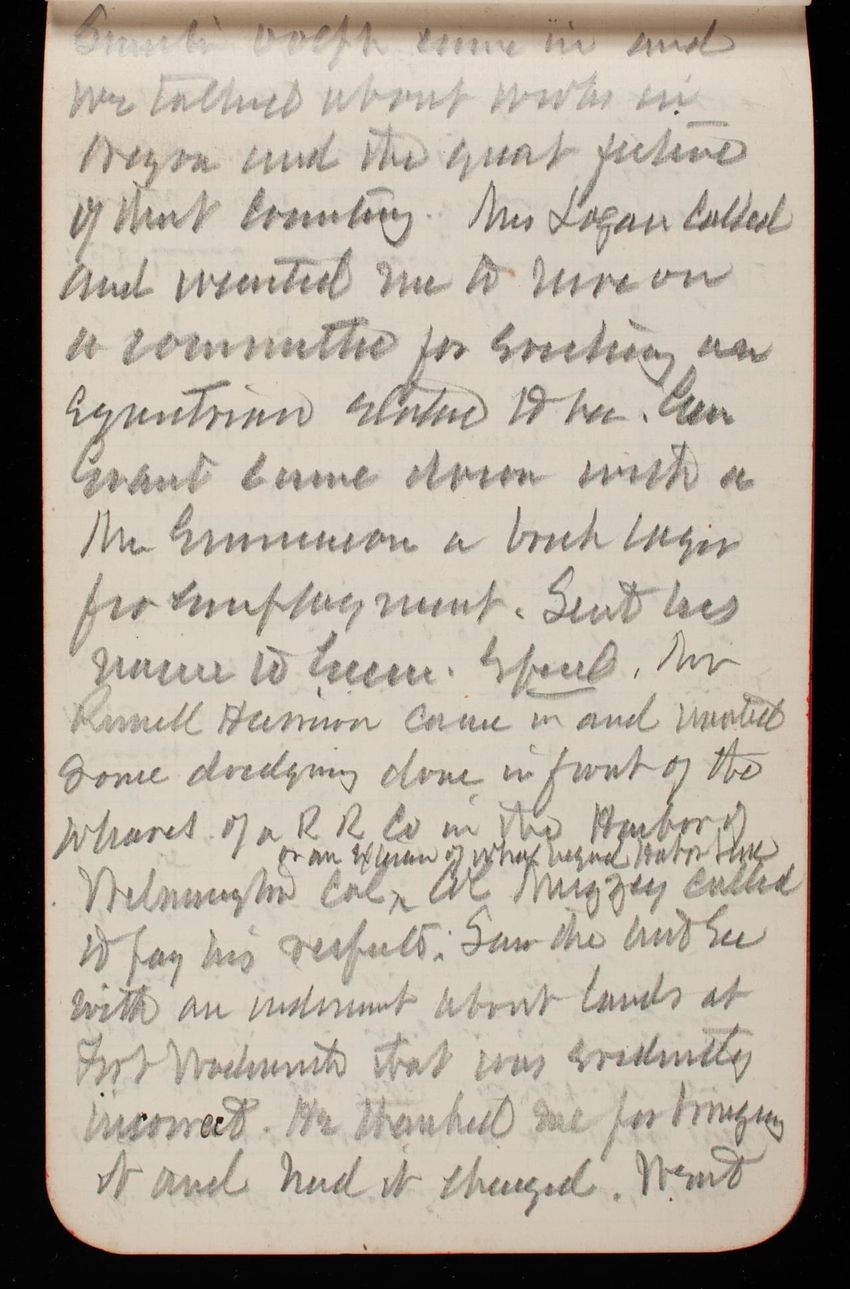 Senator Dolph came in and
we talked about works in
Oregon and the great future
of that Country. Mrs Logan Called
and wanted me to serve on
a committee for Erecting an
Equestrian statue to her. Gen
Grant came down with a
Mr a brick layer
for Employment. Sent his
name to Greene. Mr
Russell Harrison came in and wanted
some dredging done in front of the
wharves of a R R Co in the Harbor of
or an Extension of what is Harbor line
Wilmington Cal, Col Muzzey Called
to pay his respects. Saw the Asst Sec
with an indorsement about lands at
Fort Wadsworth that was evidently
incorrect. He thanked me for bringing
it and had it changed. Went